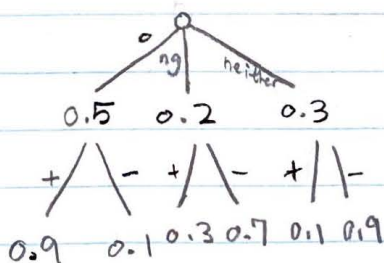 o ng neither
0.5 0.2 0.3
+ - + - + -
0.9 0.1 0.3 0.7 0.1 0.9